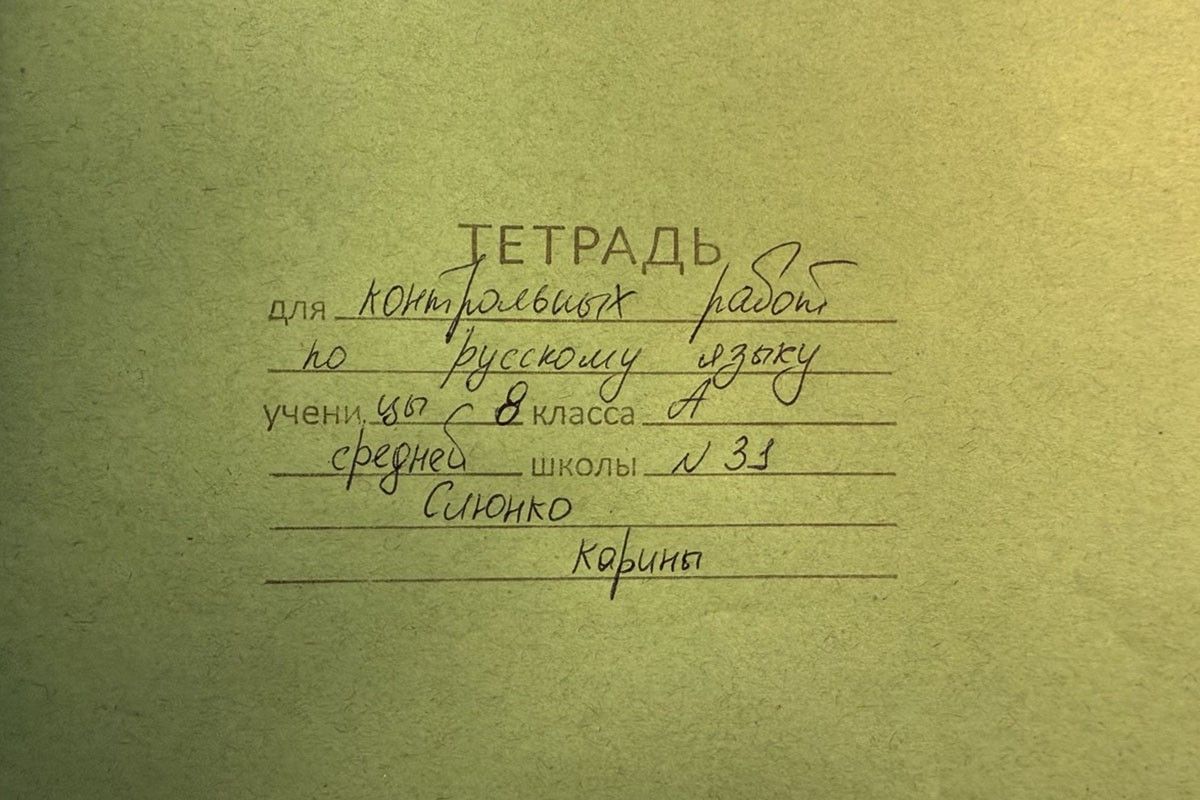 ТЕТРАДЬ
для контрольных работ
по русскому языку
ученицы 8 класса А
средней школы N 31
Слюнко
Карины